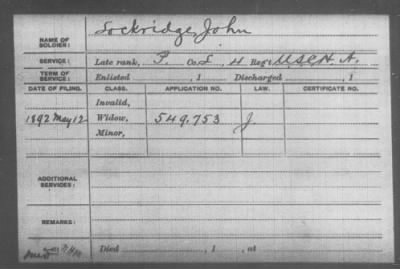 NAME OF SOLDIER: Lockridge, John
SERVICE: Late rank, P. Co. L, 4 Reg't U.S.C.H.A.
TERM OF SERVICE: Enlisted , 1 Discharged , 1
DATE OF FILING. CLASS. APPLICATION NO. LAW. CERTIFICATE NO.
Invalid,
1892 May 12 Widow, 549,753 J.
Minor,
ADDITIONAL SERVICES:
REMARKS:
Died , 1 , at